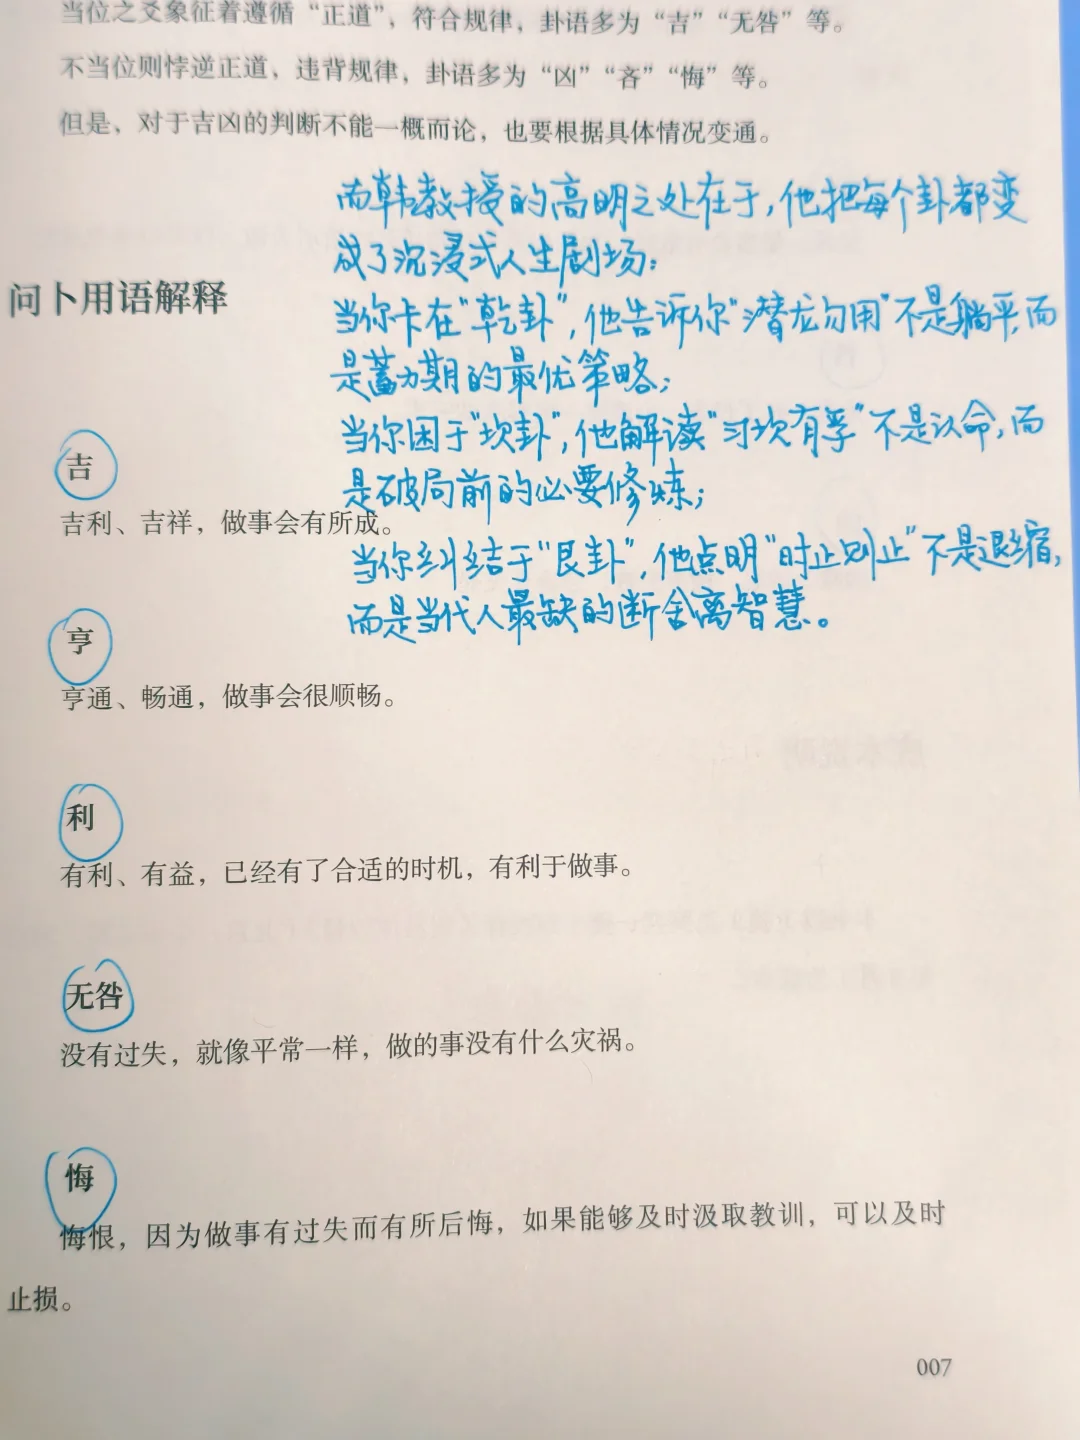 当位之爻象征着遵循“正道”，符合规律，卦语多为“吉”“无咎”等。
不当位则悖逆正道，违背规律，卦语多为“凶”“吝”“悔”等。
但是，对于吉凶的判断不能一概而论，也要根据具体情况变通。
而韩教授的高明之处在于，他把每个卦都变
成了沉浸式人生剧场：
问卜用语解释
当你卡在“乾卦”，他告诉你“潜龙勿用”不是躺平，而
是蓄力期的最优策略；
当你困于“坎卦”，他解读“习坎有孚”不是认命，而
是破局前的必要修炼；
吉
吉利、吉祥，做事会有所成。
当你纠结于“艮卦”，他点明“时止则止”不是退缩，
而是当代人最缺的断舍离智慧。
亨
亨通、畅通，做事会很顺畅。
利
有利、有益，已经有了合适的时机，有利于做事。
无咎
没有过失，就像平常一样，做的事没有什么灾祸。
悔
悔恨，因为做事有过失而有所后悔，如果能够及时汲取教训，可以及时
止损。
007